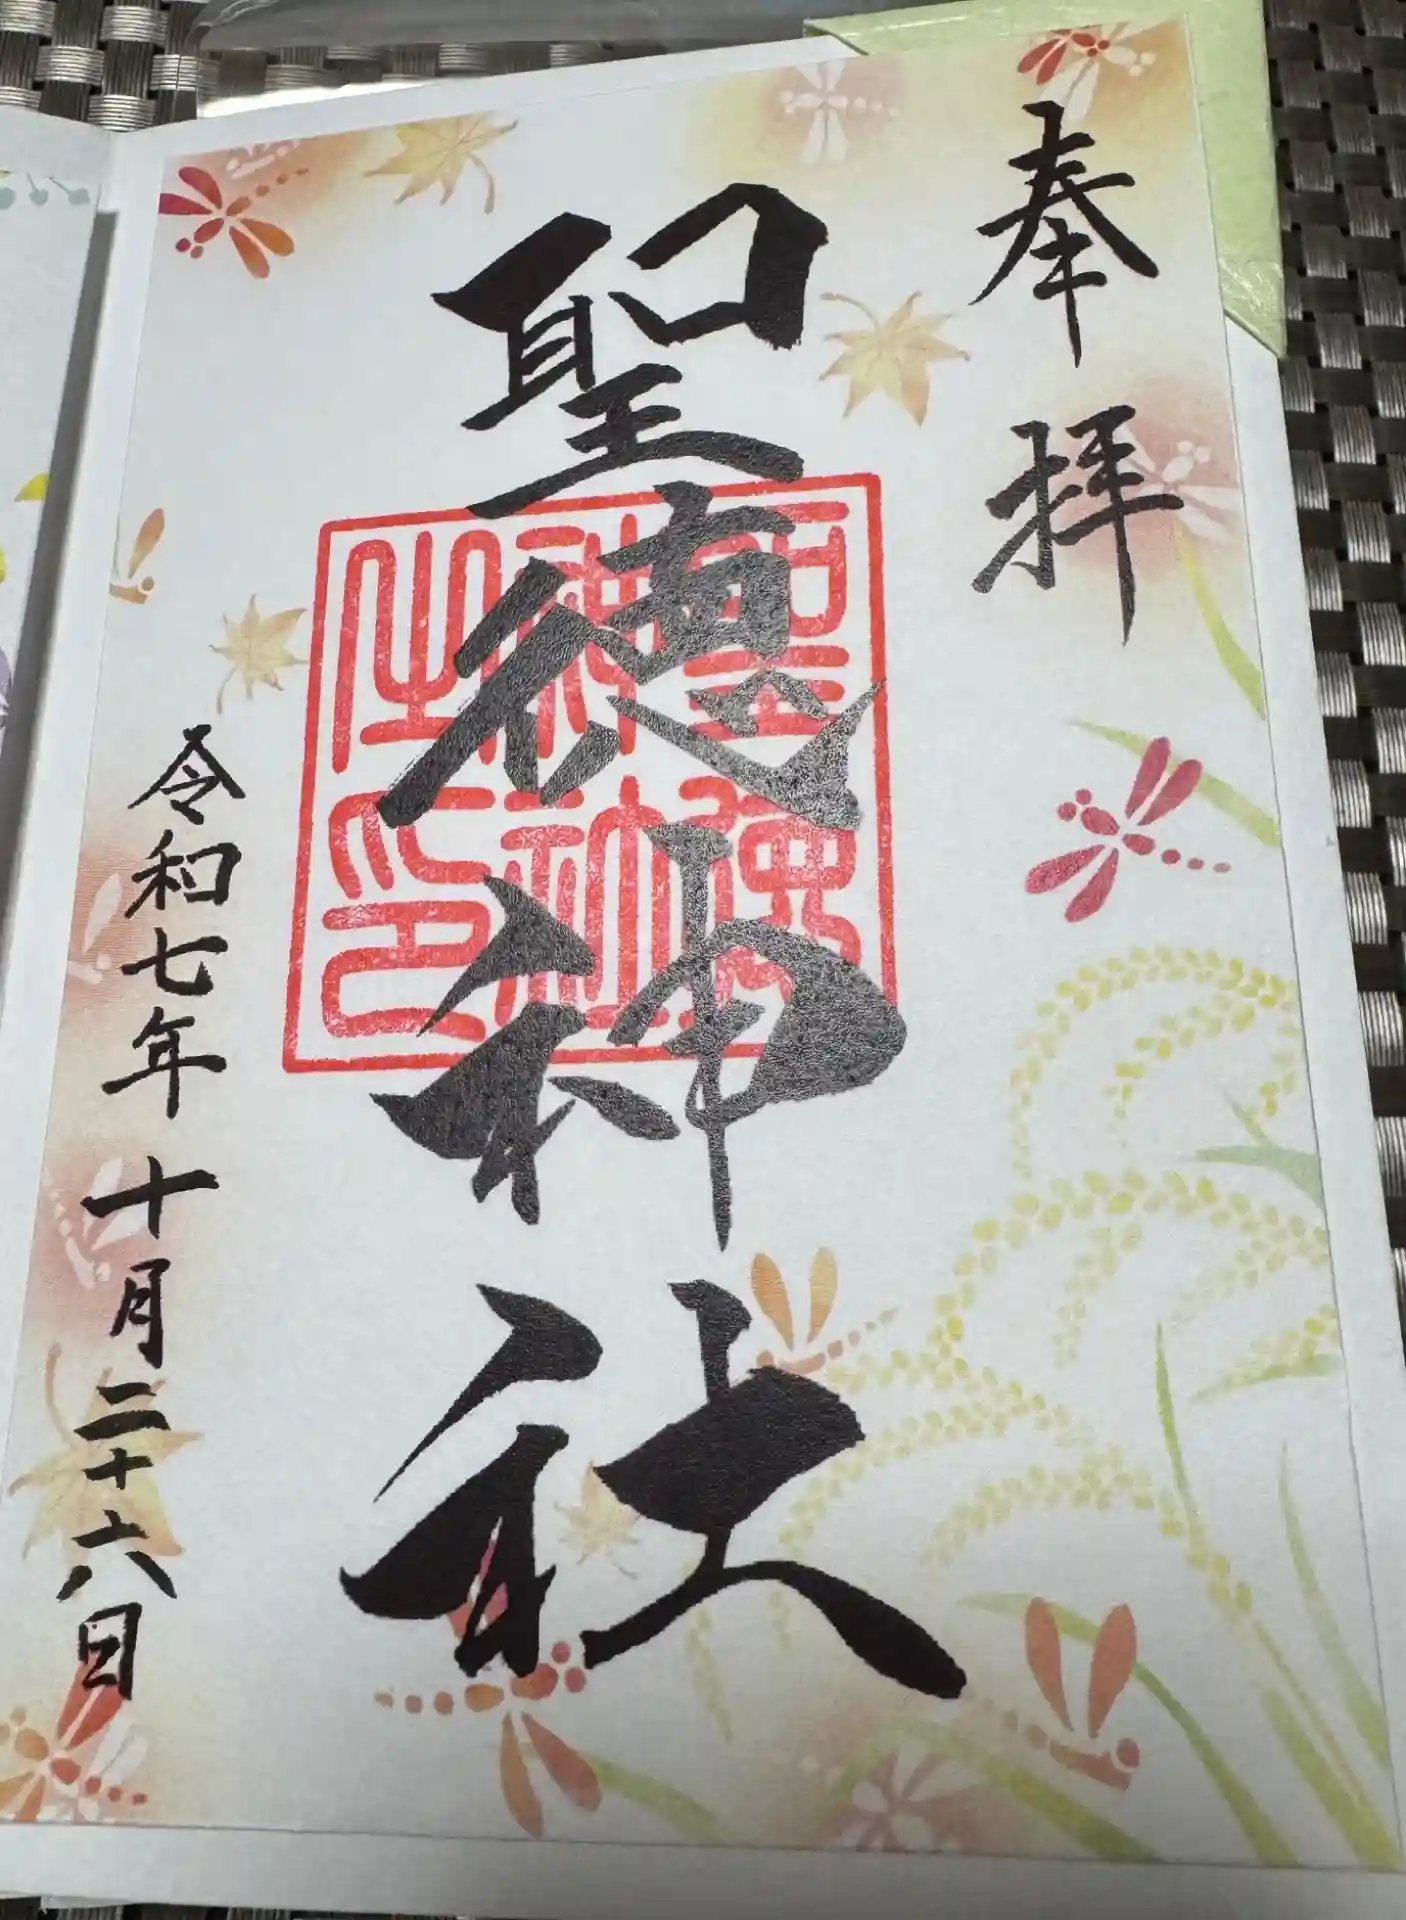 奉拝
聖徳神社
聖徳
神社
之印
令和七年十月二十六日